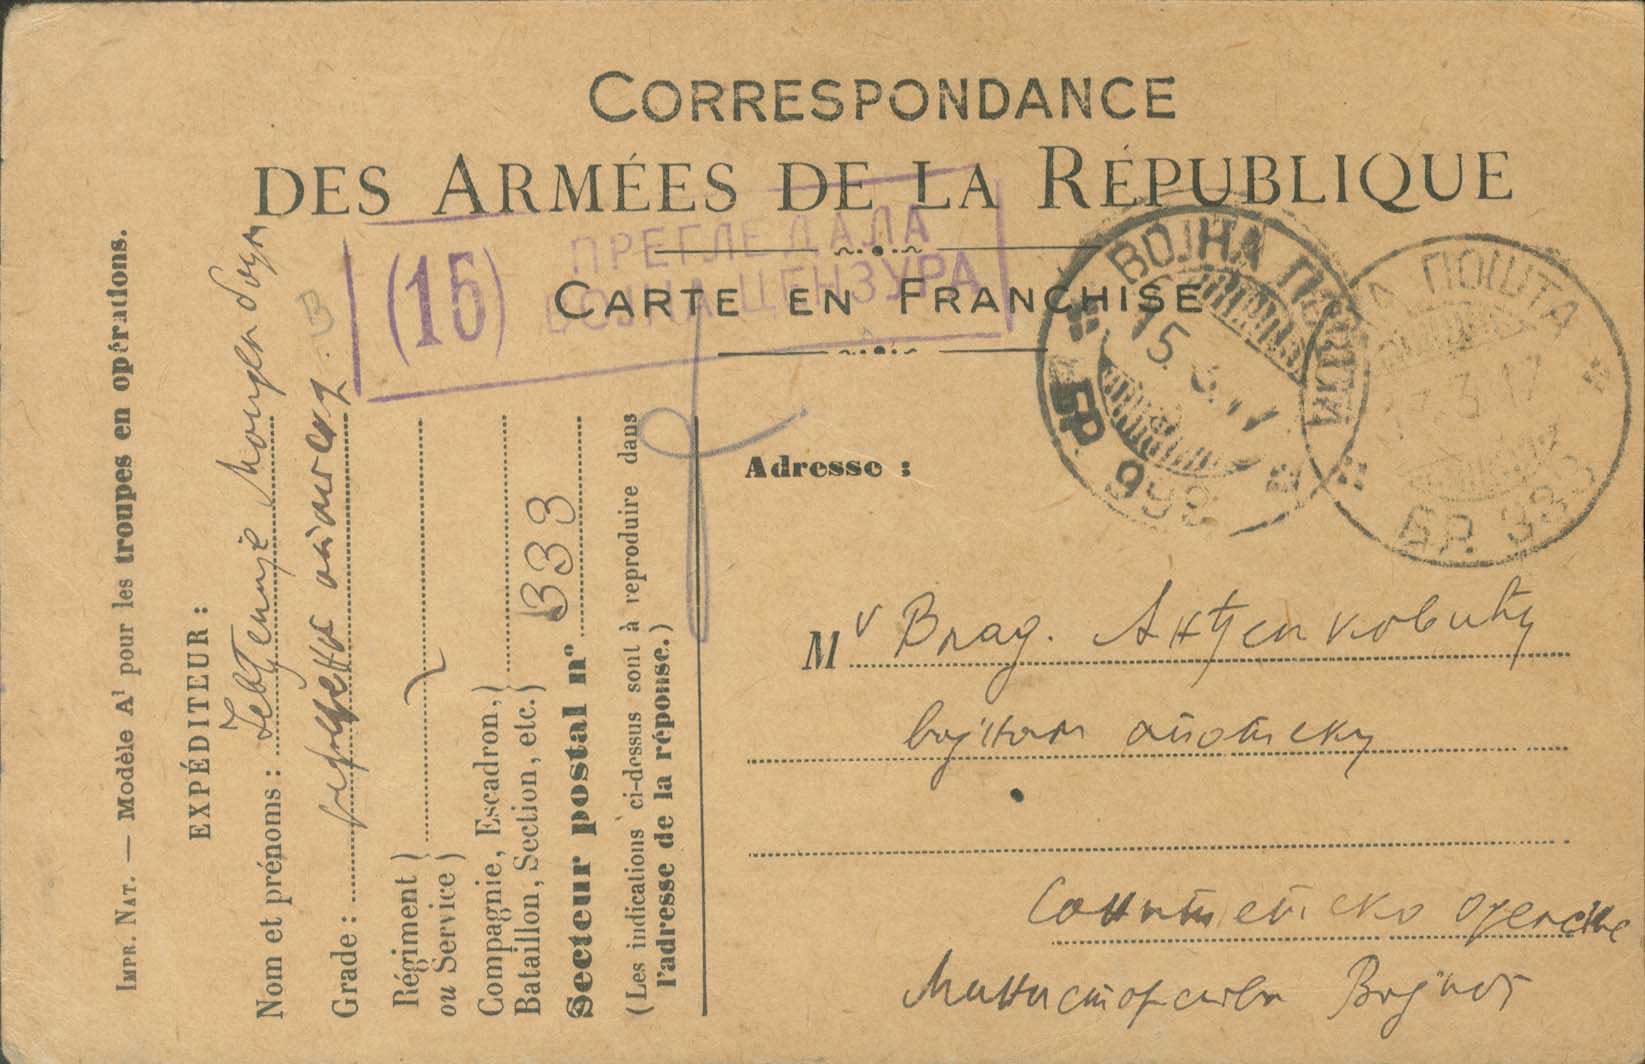 CORRESPONDANCE
DES ARMÉES DE LA RÉPUBLIQUE
CARTE EN FRANCHISE
(15) ПРЕГЛЕДАЛА
ВОЈНА ЦЕНЗУРА
ВОЈНА ПОШТА
15. 3. 17
БР. 999
ПОШТА
3. 17
БР. 383
IMPR. NAT. — Modèle A¹ pour les troupes en opérations.
EXPÉDITEUR :
Nom et prénoms : Јевђеније
Grade :
Régiment
ou Service
Compagnie, Escadron,
Bataillon, Section, etc.
Secteur postal n° 333
(Les indications ci-dessus sont à reproduire dans
l'adresse de la réponse.)
Adresse :
Mr Влад. Анђелковићу
војном апотекару
Санитетско одељење
Министарства Војног